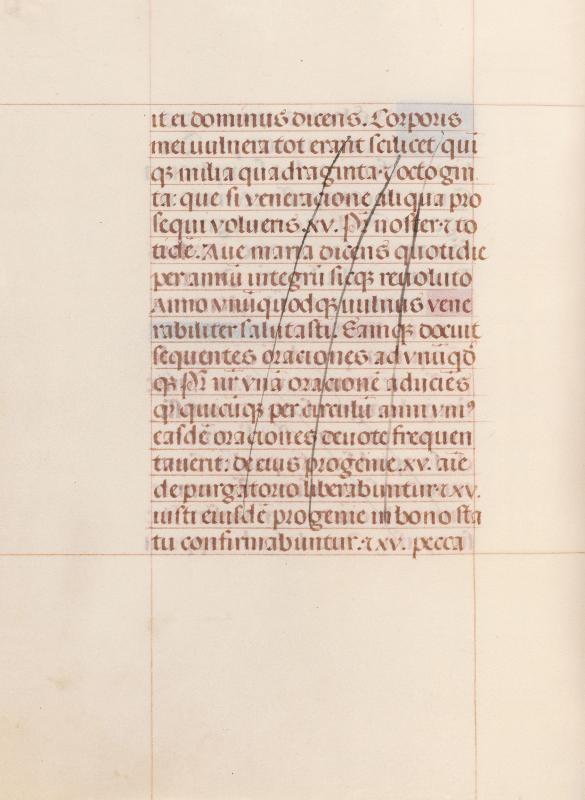 it ei dominus dicens. Corporis
mei uulnera tot erant scilicet qui
q3 milia quadraginta ⁊ octogin
ta: que si veneracione aliqua pro
sequi volueris .xv. Pr̄ noster ⁊ to
tidē. Aue maria dicens quotidie
per annū integrū sicq3 reuoluto
Anno vnūquodq3 uulnus vene
rabiliter salutasti. Eamq3 docuit
sequentes oraciones ad vnūqd̄
q3 Pr̄ nr̄ vnā oracionē adiciēs
qr̄ quicūq3 per circulū anni vniꝰ
easdē oraciones deuote frequen
tauerit: de eius progenie .xv. aīe
de purgatorio liberabuntur ⁊ xv.
iusti eiusdē progenie in bono sta
tu confirmabuntur. ⁊ xv. pecca